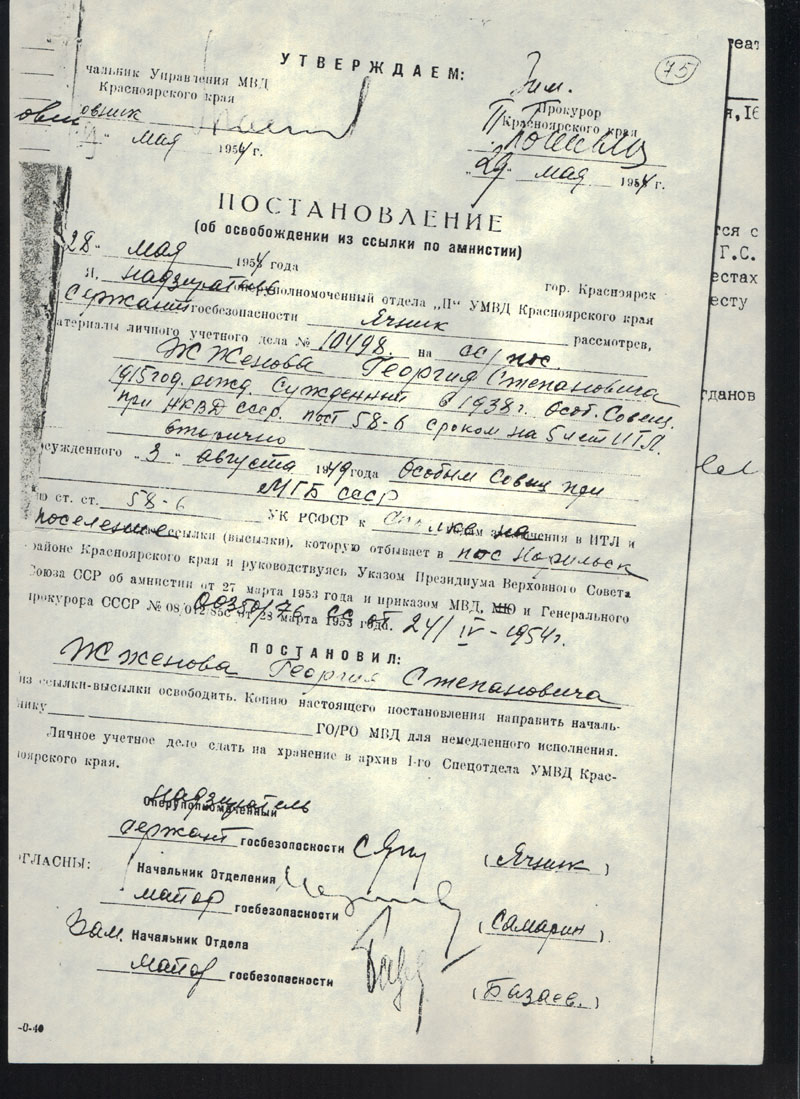 75
УТВЕРЖДАЕМ:
чальник Управления МВД
Красноярского края
овник
мая 1954 г.
Зам.
Прокурор
Красноярского края
"29" мая 1954 г.
ПОСТАНОВЛЕНИЕ
(об освобождении из ссылки по амнистии)
28" мая 1954 года
гор. Красноярск
Я, надзиратель оперуполномоченный отдела „П" УМВД Красноярского края
Сержант госбезопасности Ячник рассмотрев,
материалы личного учетного дела № 10498. на сс/пос.
Жженова Георгия Степановича
1915 год. рожд. Сужденный в 1938 г. Особ. Совещ.
при НКВД СССР. по ст 58-6 сроком на 5 лет ИТЛ.
вторично
осужденного "3" августа 1949 года Особым Совещ при
МГБ СССР
по ст. ст. 58-6 УК РСФСР к заключения в ИТЛ и
поселение ссылки (высылки), которую отбывает в пос Норильск
районе Красноярского края и руководствуясь Указом Президиума Верховного Совета
Союза ССР об амнистии от 27 марта 1953 года и приказом МВД, МЮ и Генерального
прокурора СССР № 08/012/85с от 28 марта 1953 года. 00350/76 сс от 24/IV-1954г.
ПОСТАНОВИЛ:
Жженова Георгия Степановича
из ссылки-высылки освободить. Копию настоящего постановления направить началь-
нику ГО/РО МВД для немедленного исполнения.
Личное учетное дело сдать на хранение в архив 1-го Спецотдела УМВД Крас-
ноярского края.
надзиратель
Оперуполномоченный
сержант госбезопасности (Ячник)
ОГЛАСНЫ:
Начальник Отделения
майор госбезопасности (Самарин)
Зам. Начальник Отдела
майор госбезопасности (Базаев.)
-0-40
еат
я, 16
тся с
Г.С.
естах
есту
гданов